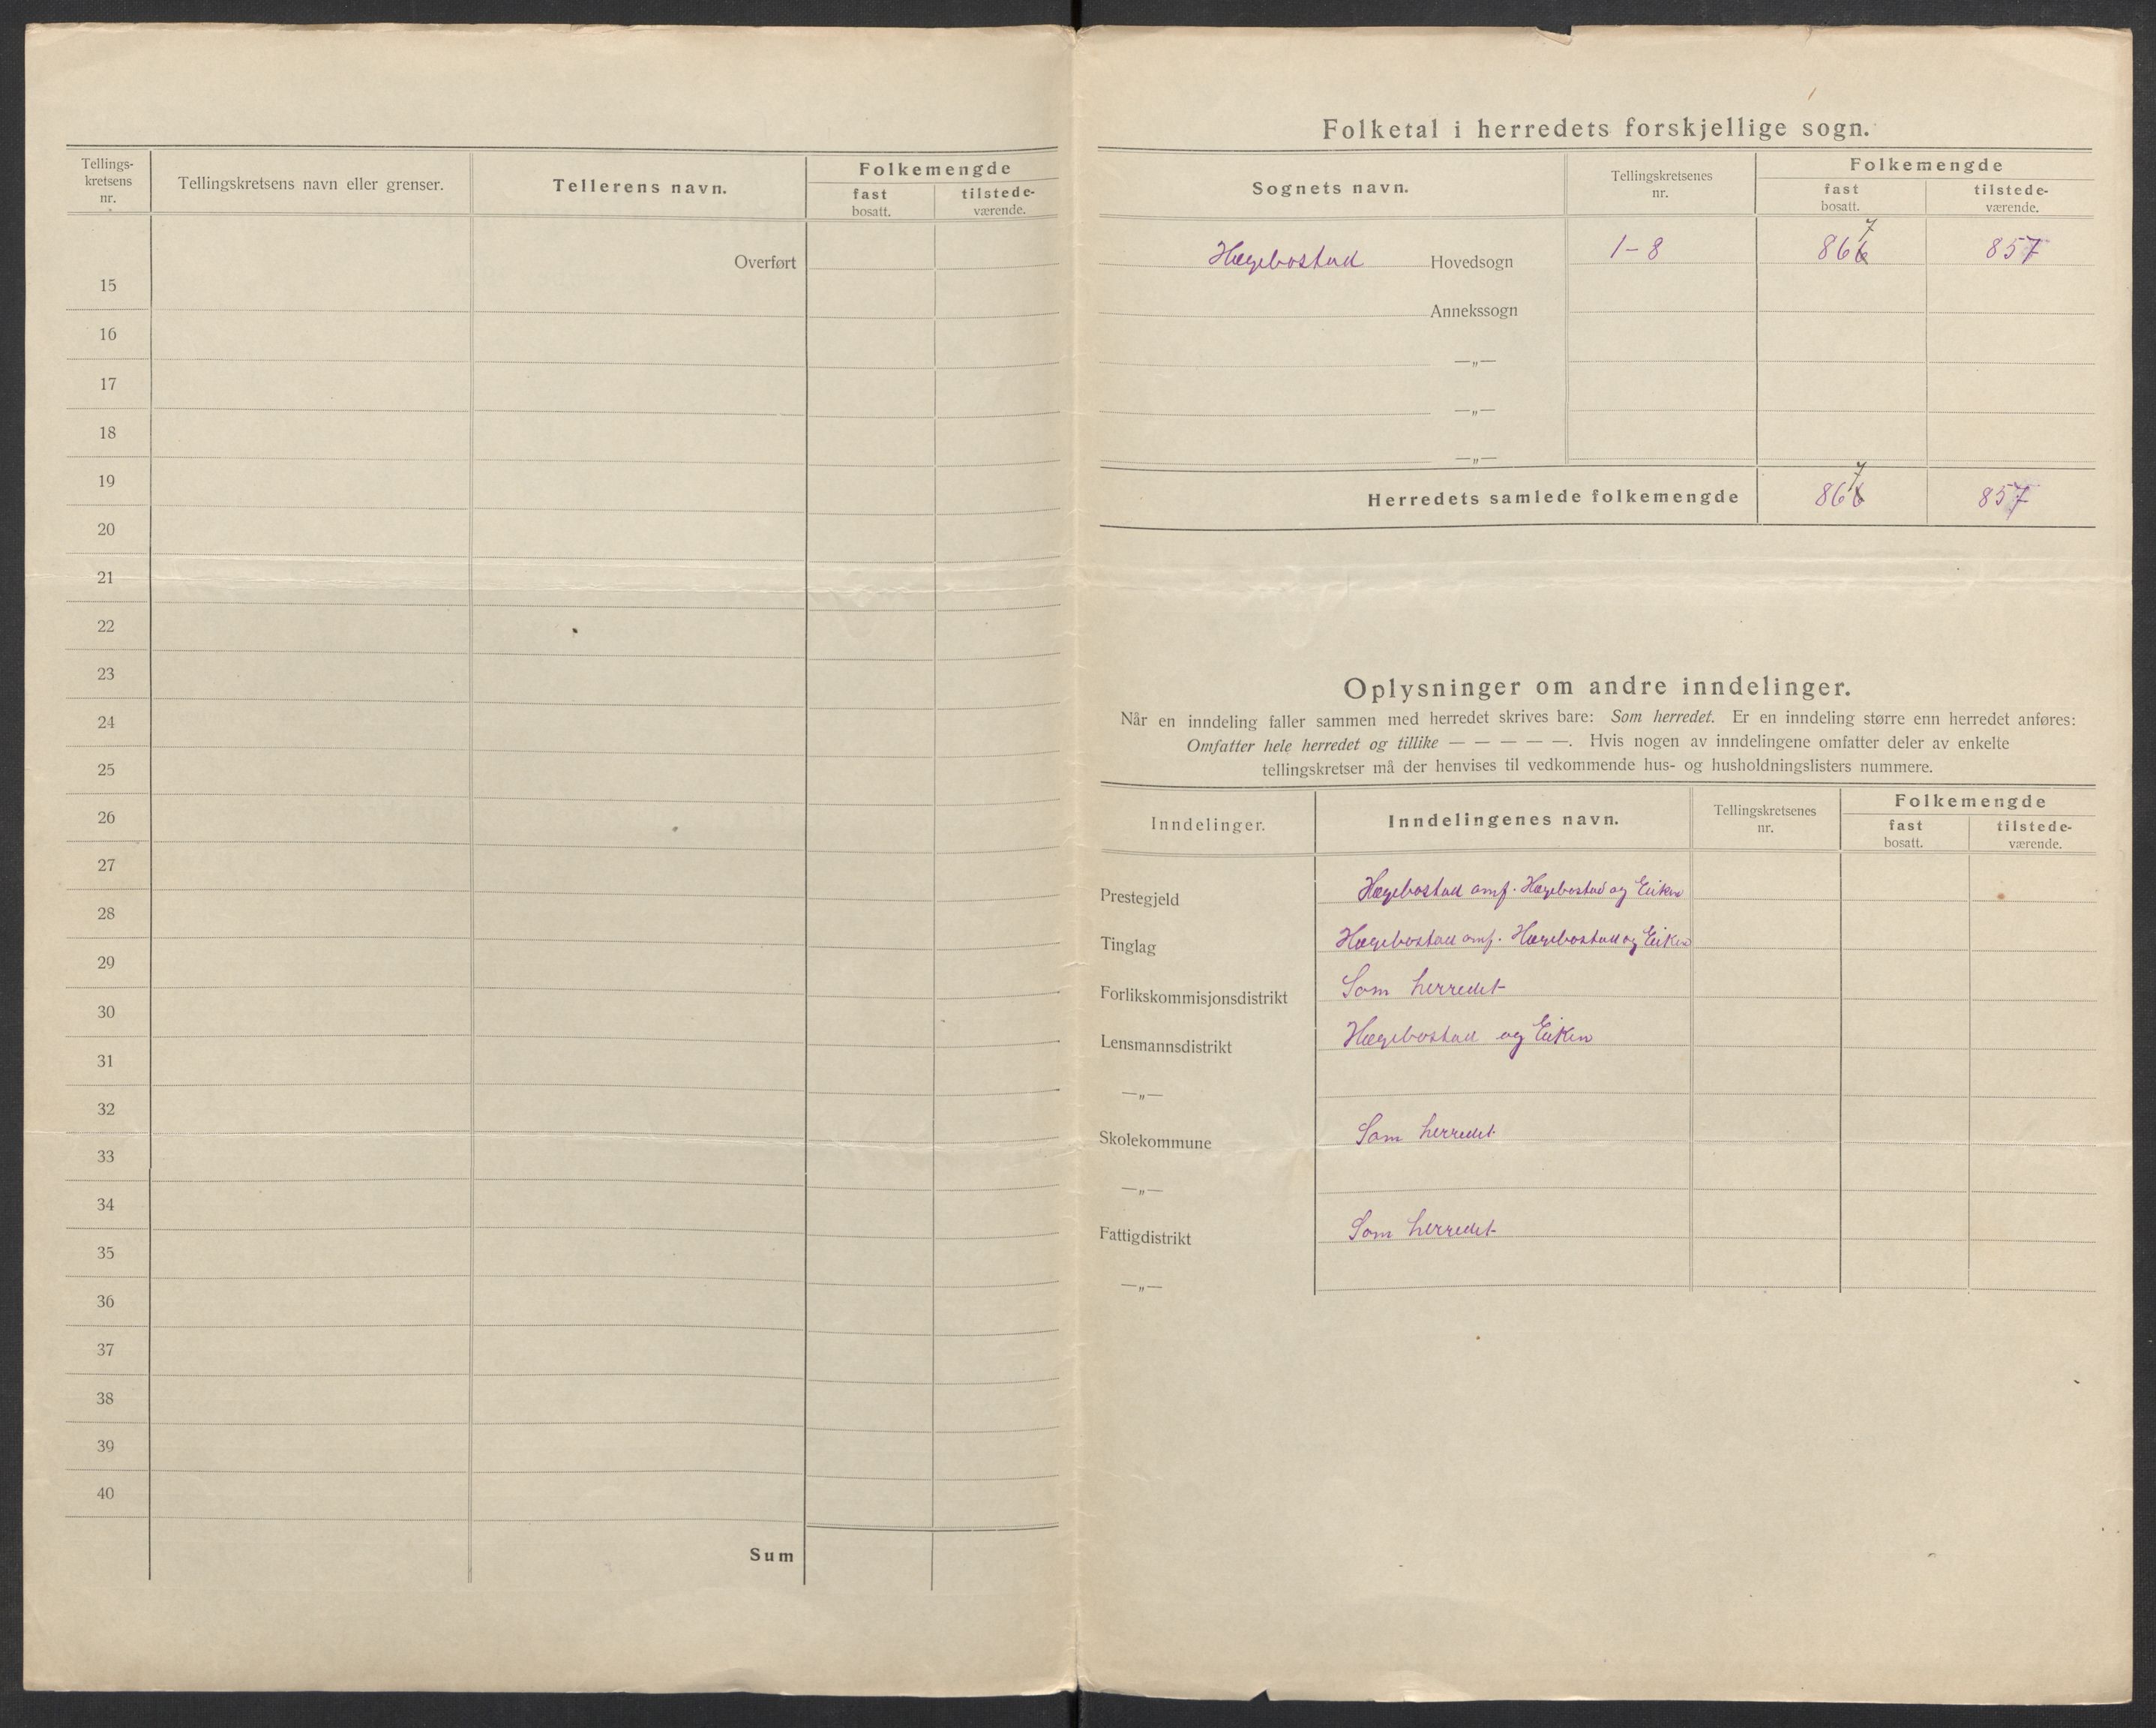 Tellings-
kretsens
nr.
Tellingskretsens navn eller grenser.
Tellerens navn.
Folkemengde
fast
bosatt.
tilstede-
værende.
Overført
15
16
17
18
19
20
21
22
23
24
25
26
27
28
29
30
31
32
33
34
35
36
37
38
39
40
Sum
Folketal i herredets forskjellige sogn.
Sognets navn.
Tellingskretsenes
nr.
Folkemengde
fast
bosatt.
tilstede-
værende.
7
Hægebostad Hovedsogn 1-8 866 857
Annekssogn
—„—
—„—
—„—
7
Herredets samlede folkemengde 866 857
Oplysninger om andre inndelinger.
Når en inndeling faller sammen med herredet skrives bare: Som herredet. Er en inndeling større enn herredet anføres:
Omfatter hele herredet og tillike — — — — —. Hvis nogen av inndelingene omfatter deler av enkelte
tellingskretser må der henvises til vedkommende hus- og husholdningslisters nummere.
Inndelinger.
Inndelingenes navn.
Tellingskretsenes
nr.
Folkemengde
fast
bosatt.
tilstede-
værende.
Prestegjeld Hægebostad omf. Hægebostad og Eiken
Tinglag Hægebostad omf. Hægebostad og Eiken
Forlikskommisjonsdistrikt Som herredet
Lensmannsdistrikt Hægebostad og Eiken
—„—
Skolekommune Som herredet
—„—
Fattigdistrikt Som herredet
—„—